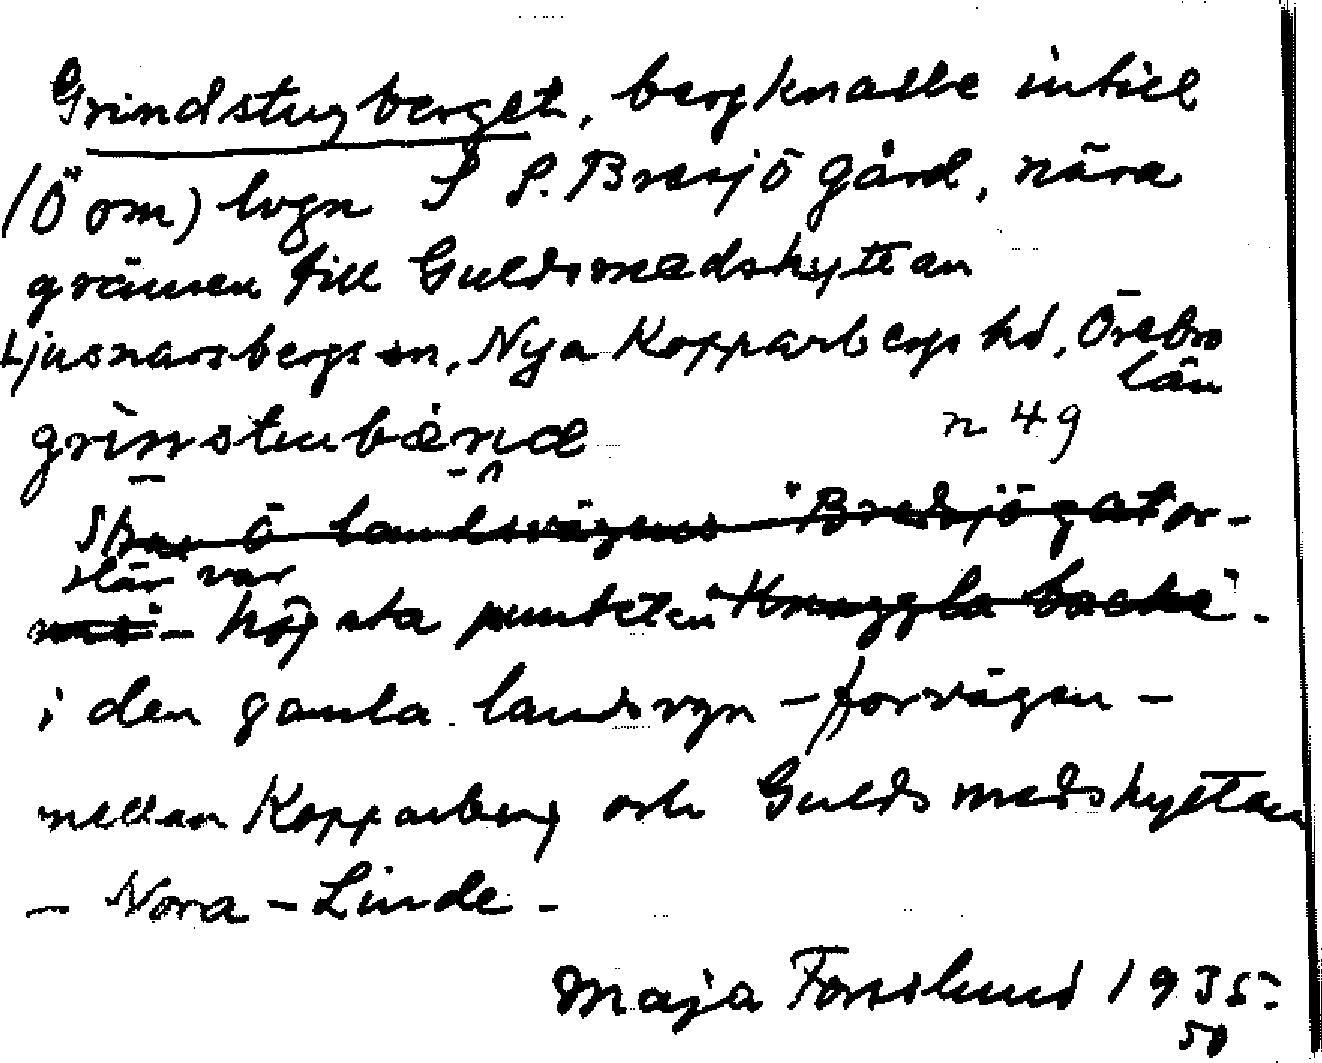 Grindstugberget, bergknalle intill
(Ö om) lvgn S S. Bresjö gård, nära
gränsen till Guldsmedshyttan
Ljusnarsbergs sn, Nya Kopparbergs hd, Örebro
län
grinstubärjæ n 49
Strax ö landsvägens "Bredsjögator-
där var
högsta punkten "Knaggla backe".
i den gamla landsvgn - forvägen -
mellan Kopparberg och Guldsmedshyttan
- Nora - Linde -
Maja Forslund 1935-
50